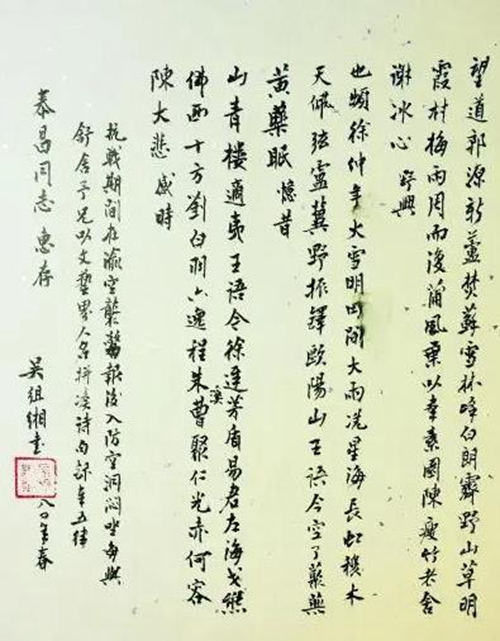 望道郭源新蘆焚蘇雪林峰白朗霽野山草明
霞村梅雨周而復蒲風葉以羣素園陳瘦竹老舍
謝冰心 野興
也頻徐仲年火雪明田間大雨冼星海長虹穆木
天佩弦盧冀野振鐸歐陽山王語今空了藂蕪
黃藥眠 憶昔
山青樓適夷王語今徐遲茅盾易君左海戈熊
佛西十方劉白羽六逸程朱溪曹聚仁光赤何容
陳大悲 感時
抗戰期間在渝空襲警報後入防空洞悶坐每與
舒舍予兄以文藝界人名拼湊詩句錄奉五律
泰昌同志 惠存
吳組緗書
八〇年春